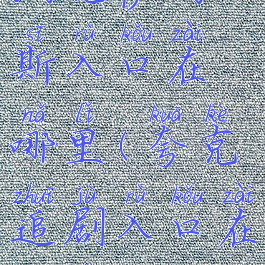 sī rù kǒu zài
斯入口在
nǎ lǐ kuā kè
哪里(夸克
zhuī jù rù kǒu zài
追剧入口在